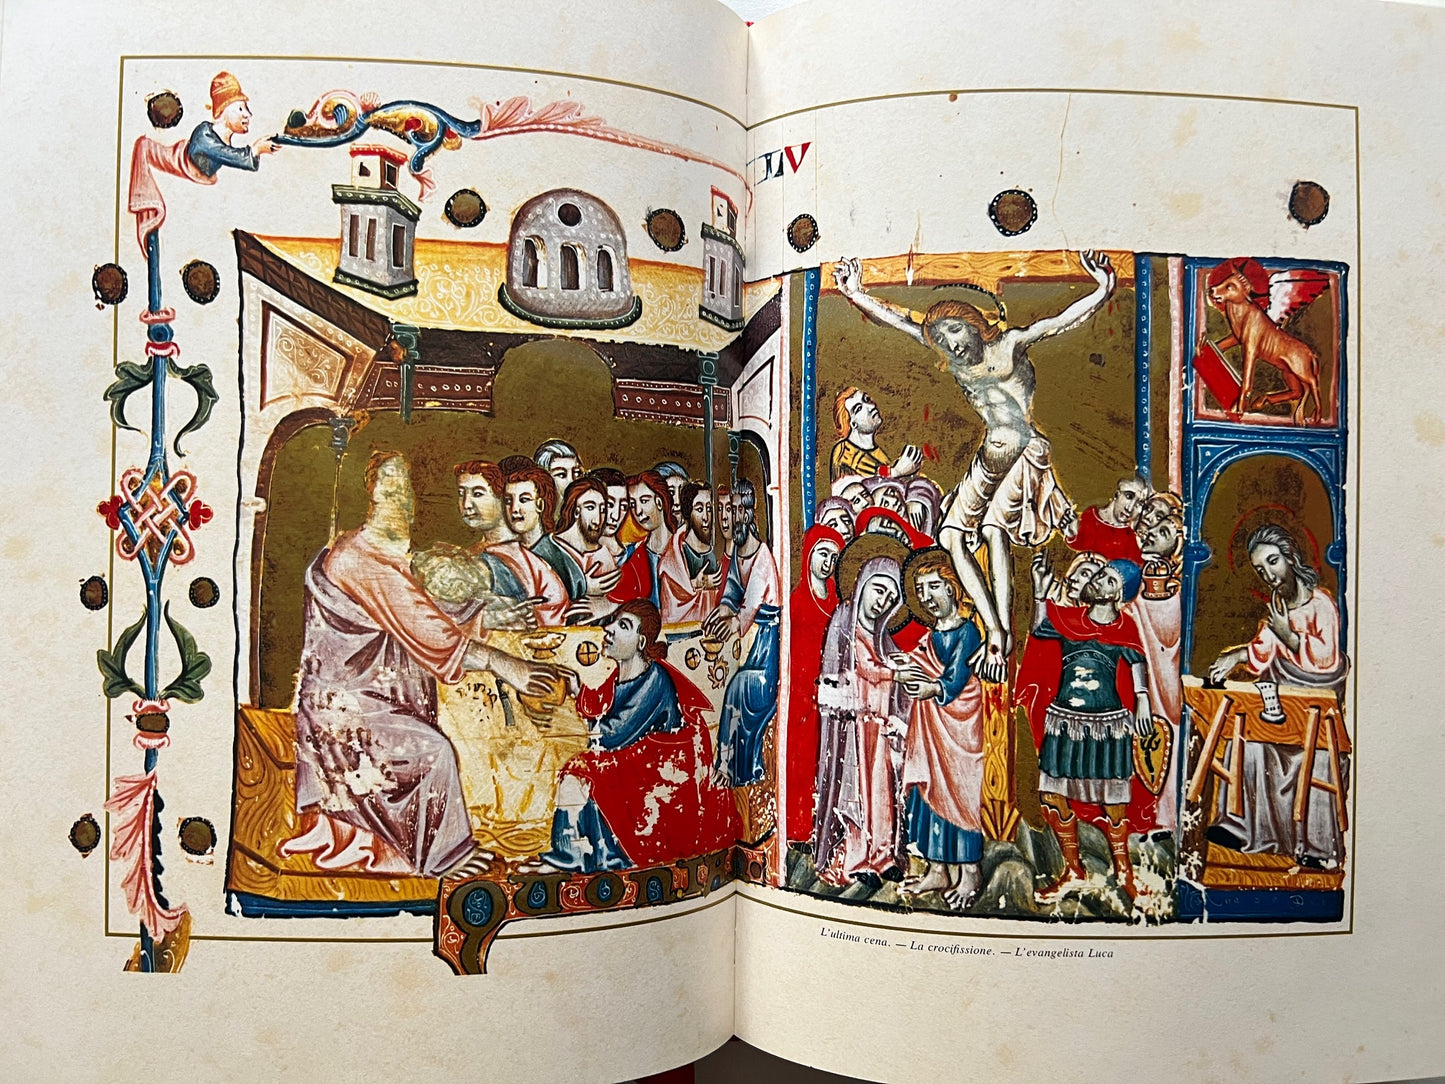 LV
L'ultima cena. — La crocifissione. — L'evangelista Luca